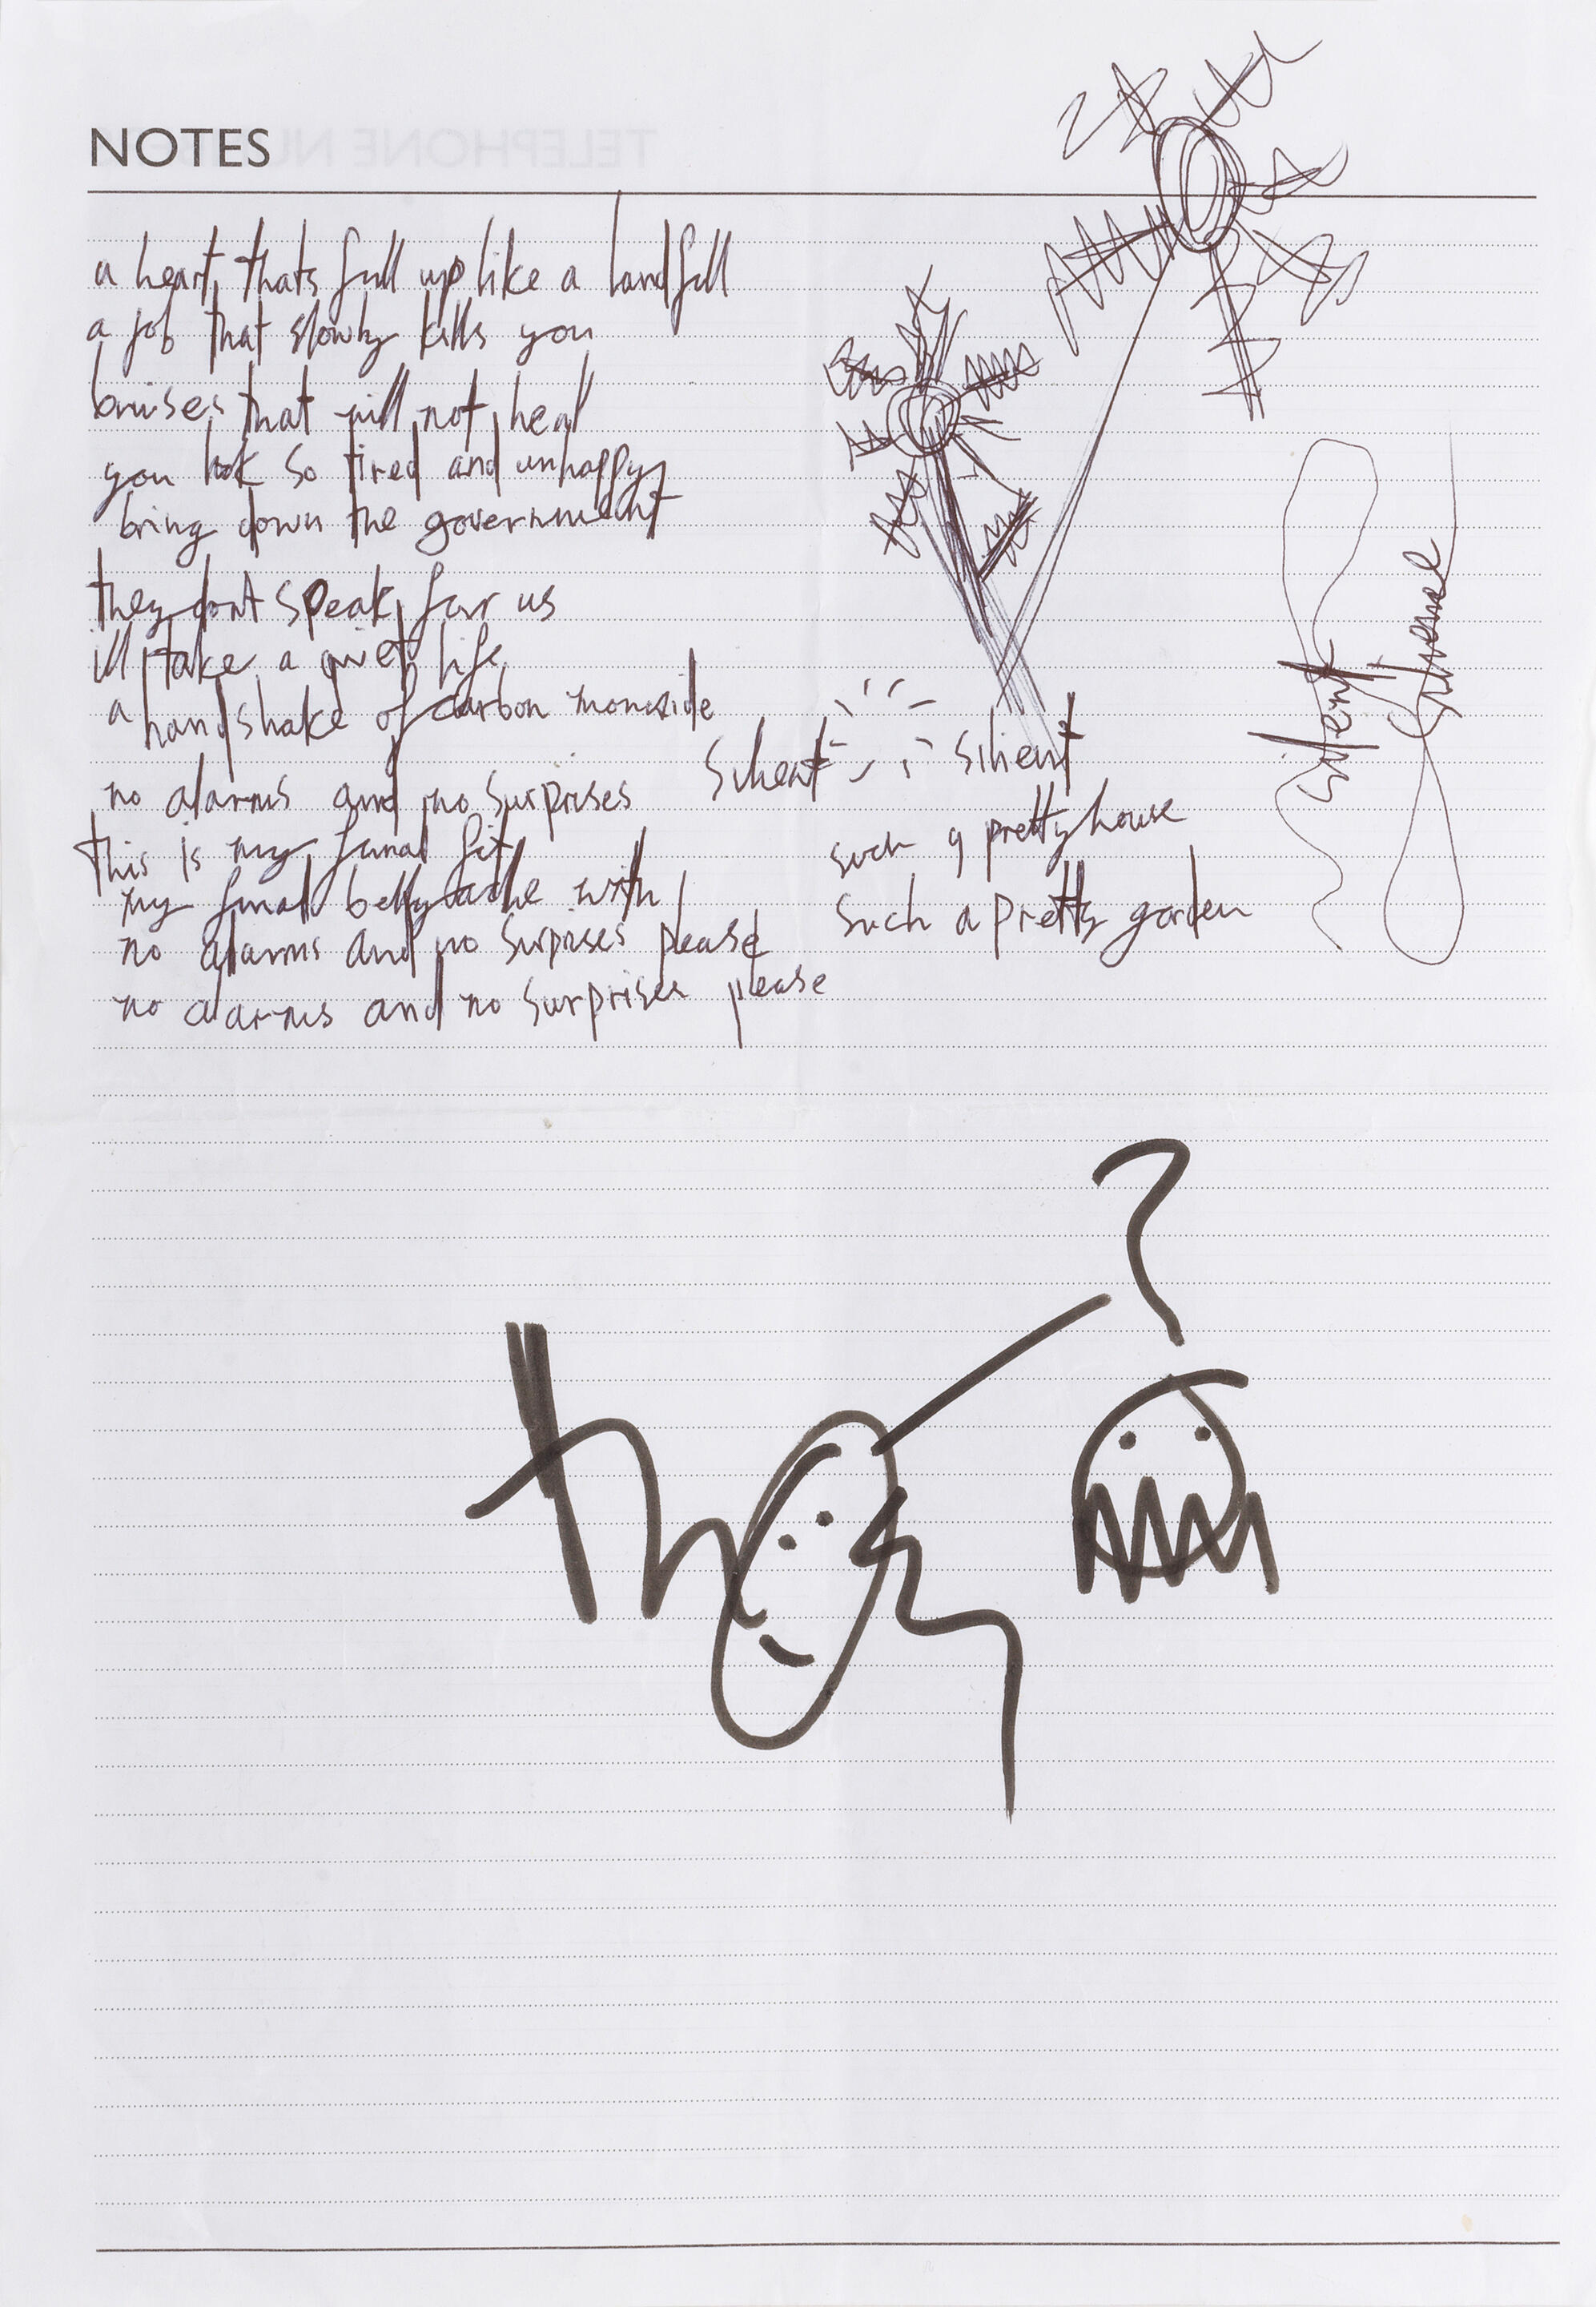 NOTES
a heart thats full up like a landfill
a job that slowly kills you
bruises that will not heal
you look so tired and unhappy
bring down the government
they dont speak for us
ill take a quiet life
a handshake of carbon monoxide
no alarms and no surprises
silent silient
this is my final fit
such a pretty house
my final bellyache with
such a pretty garden
no alarms and no surpises please
no alarms and no surprises please
silent
?